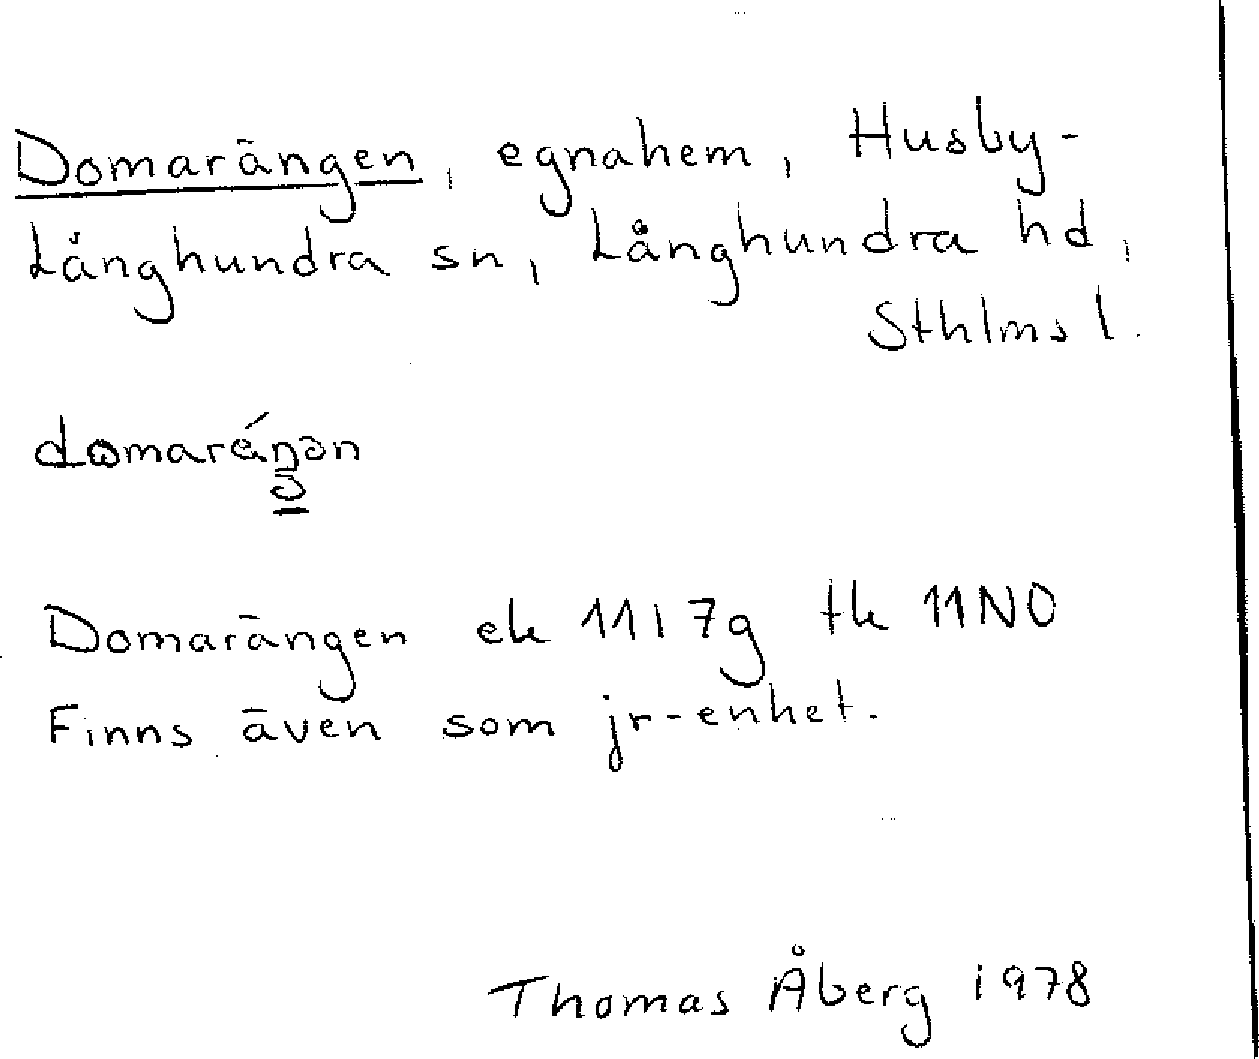 Domarängen, egnahem, Husby-
Långhundra sn, Långhundra hd,
Sthlms l.
Domarängen ek 11I 7g tk 11NO
Finns även som jr-enhet.
Thomas Åberg 1978